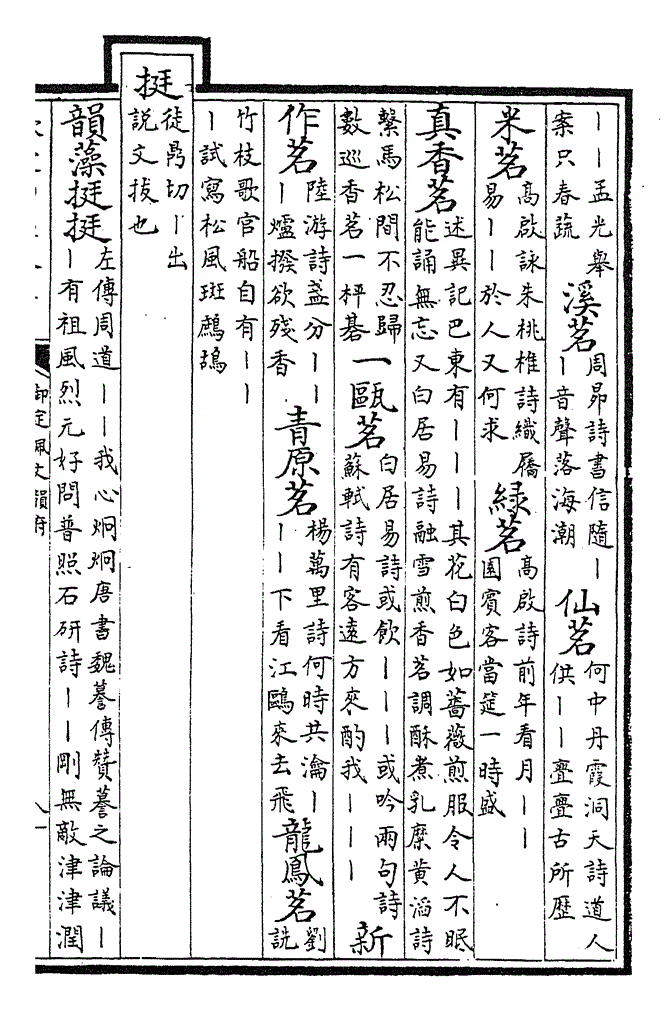 ｜｜孟光舉
案只春蔬
溪茗
周昂詩書信隨｜
｜音聲落海潮
仙茗
何中丹霞洞天詩道人
供｜｜亹亹古所歷
米茗
高啟詠朱桃椎詩織屩
易｜｜於人又何求
緑茗
高啟詩前年看月｜｜
園賓客當筵一時盛
真香茗
述異記巴東有｜｜｜其花白色如薔薇煎服令人不眠
能誦無忘又白居易詩融雪煎香茗調酥煮乳糜黄滔詩
繫馬松間不忍歸
數巡香茗一枰碁
一甌茗
白居易詩或飲｜｜｜或吟兩句詩
蘇軾詩有客遠方來酌我｜｜｜
新
作茗
陸游詩盞分｜｜
｜爐撥欲殘香
青原茗
楊萬里詩何時共瀹｜
｜｜下看江鷗來去飛
龍鳳茗
劉
詵
竹枝歌官船自有｜｜
｜試寫松風斑鷓鴣
挺
徒鼎切｜出
説文拔也
韻藻挺挺
左傳周道｜｜我心炯炯唐書魏謩傳贊謩之論議｜
｜有祖風烈元好問普照石研詩｜｜剛無敵津津潤
御定佩文韻府